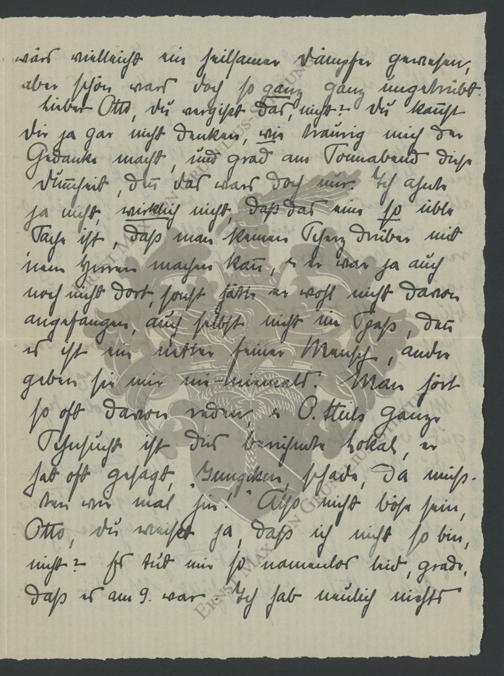 wärs vielleicht ein heilsamer Dämpfer gewesen,
aber schön wars doch so ganz ganz ungetrübt.
Lieber Otto, du vergißt das, nicht? Du kannst
dir ja gar nicht denken, wie traurig mich der
Gedanke macht, und grad am Sonnabend diese
Dummheit, denn das wars doch nur. Ich ahnte
ja nicht, wirklich nicht, daß das eine so üble
Sache ist, daß man keinen Scherz drüber mit
'nem Herren machen kann, er war ja auch
noch nicht dort, sonst hätte er wohl nicht davon
angefangen, auch selbst nicht im Spaß, denn
es ist ein netter feiner Mensch, andre
geben sie mir nie-niemals. Man hört
so oft davon reden, O. ganze
Sehnsucht ist das berühmte Lokal, er
hat oft gesagt, schade, da müß-
ten wir mal hin." Also nicht böse sein,
Otto, du weißt ja, daß ich nicht so bin,
nicht? Es tut mir so namenlos leid, grade,
daß es am 9. war. Ich hab neulich nichts
ERNST MAX VON GRUNELIUS-STIFTUNG